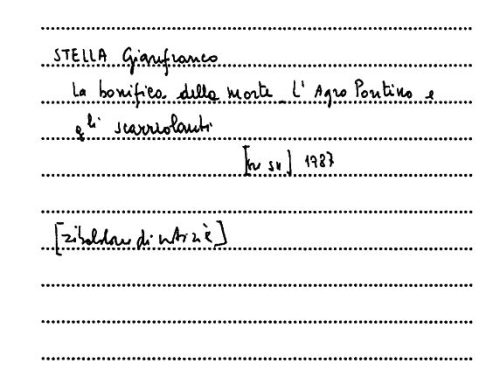 STELLA Gianfranco
La bonifica della morte. L'Agro Pontino e
gli scarriolanti
1987
[zibaldone di notizie]